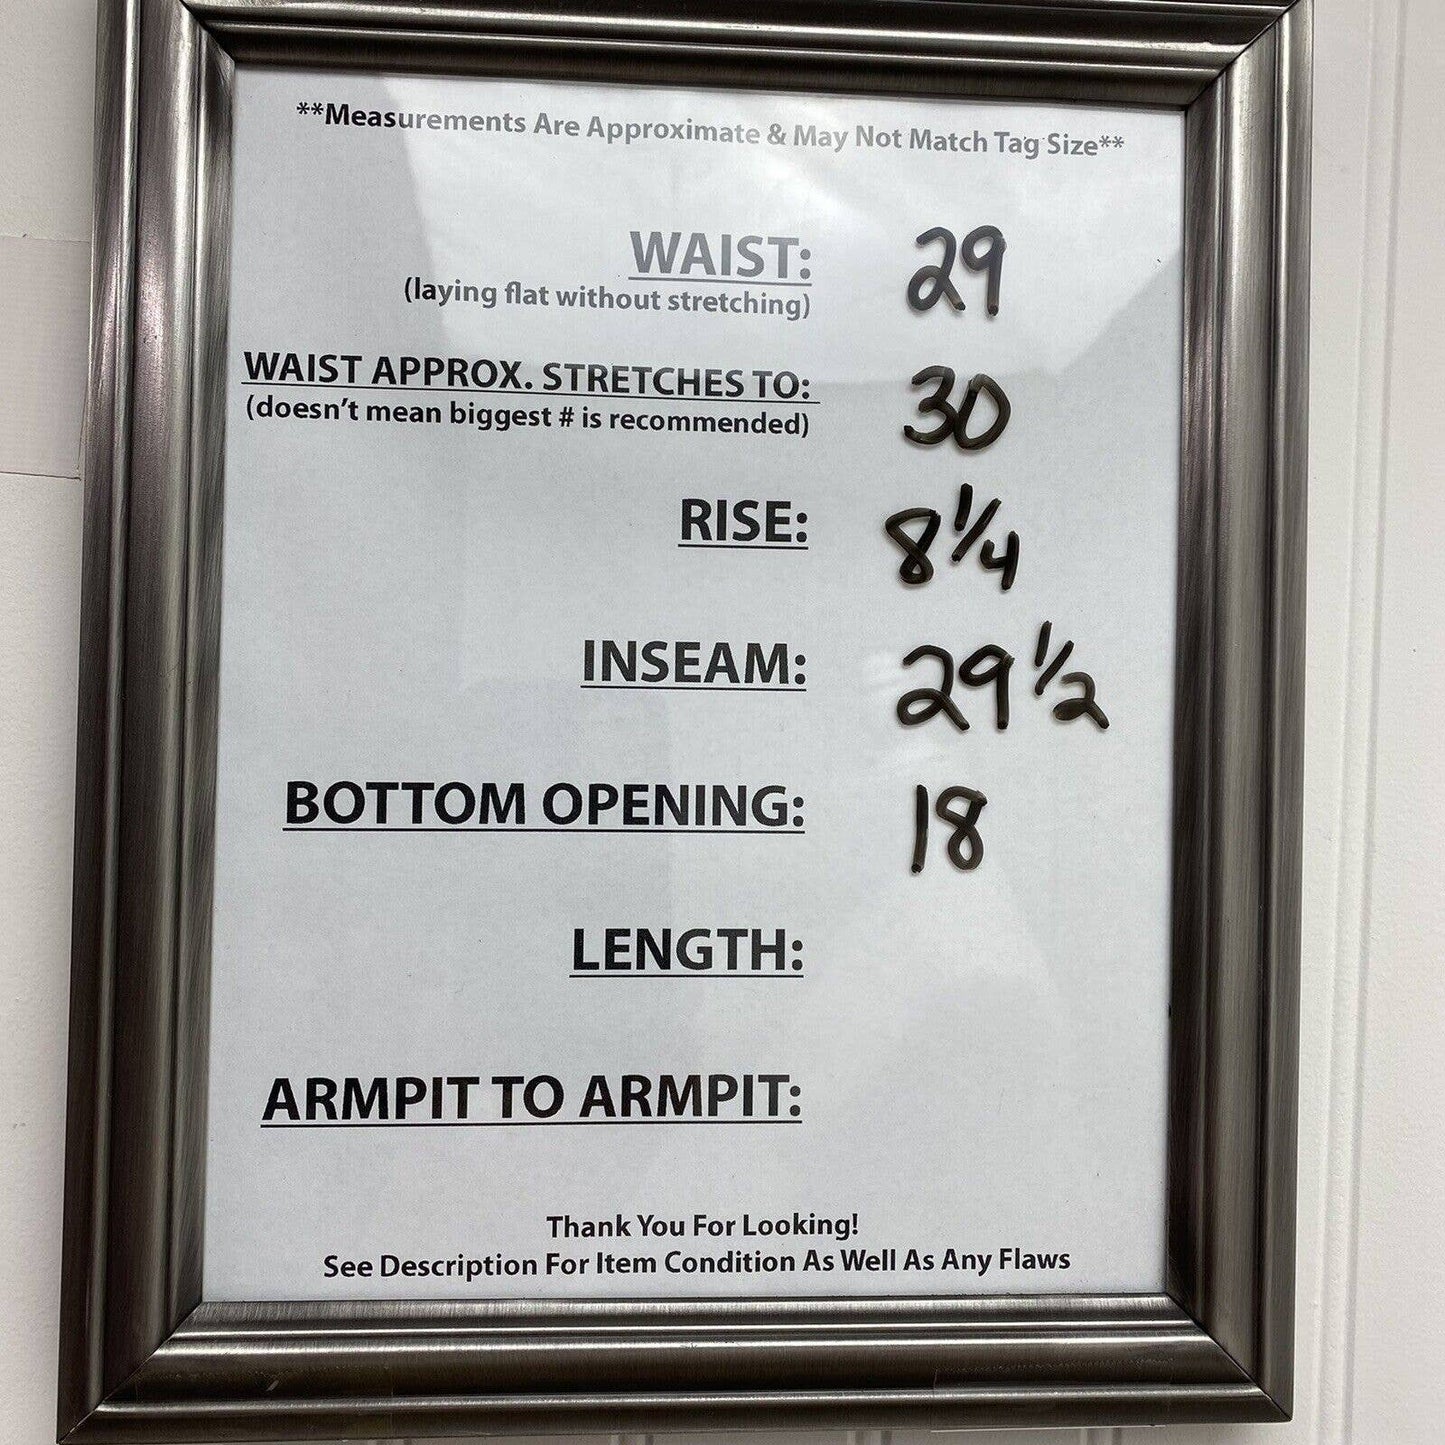 **Measurements Are Approximate & May Not Match Tag Size**
WAIST: 29
(laying flat without stretching)
WAIST APPROX. STRETCHES TO: 30
(doesn't mean biggest # is recommended)
RISE: 8 1/4
INSEAM: 29 1/2
BOTTOM OPENING: 18
LENGTH:
ARMPIT TO ARMPIT:
Thank You For Looking!
See Description For Item Condition As Well As Any Flaws